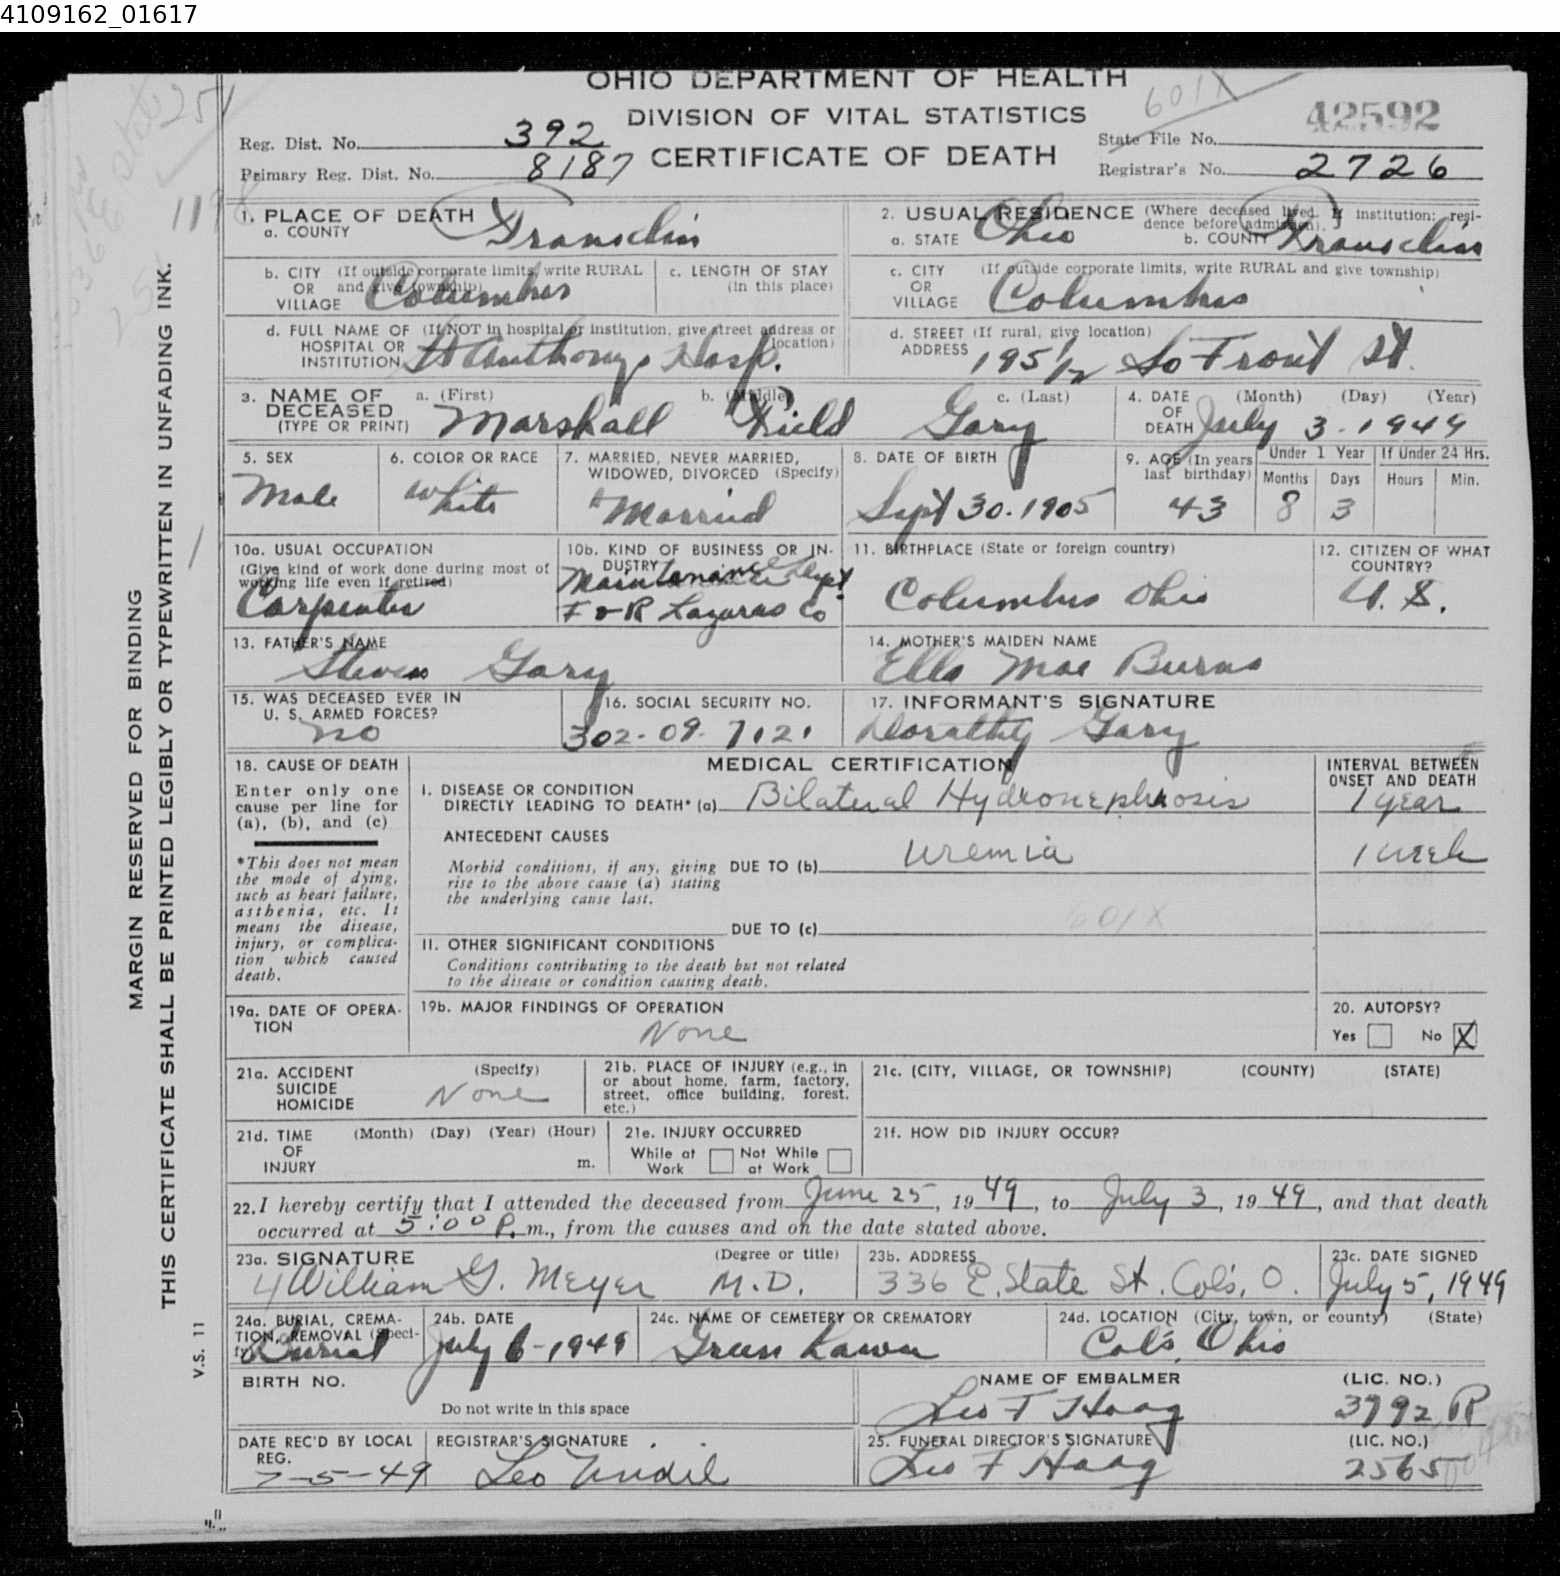 4109162_01617
OHIO DEPARTMENT OF HEALTH
DIVISION OF VITAL STATISTICS
CERTIFICATE OF DEATH
601X
42592
Reg. Dist. No. 392
State File No.
Primary Reg. Dist. No. 8187
Registrar's No. 2726
MARGIN RESERVED FOR BINDING
THIS CERTIFICATE SHALL BE PRINTED LEGIBLY OR TYPEWRITTEN IN UNFADING INK.
V.S. 11
1. PLACE OF DEATH
a. COUNTY Franklin
2. USUAL RESIDENCE (Where deceased lived. If institution: residence before admission).
a. STATE Ohio b. COUNTY Franklin
b. CITY OR VILLAGE (If outside corporate limits, write RURAL and give township) Columbus
c. LENGTH OF STAY (in this place)
c. CITY OR VILLAGE (If outside corporate limits, write RURAL and give township) Columbus
d. FULL NAME OF HOSPITAL OR INSTITUTION (If NOT in hospital or institution, give street address or location) St Anthonys Hosp.
d. STREET ADDRESS (If rural, give location) 195 1/2 So Front St.
3. NAME OF DECEASED (TYPE OR PRINT) a. (First) Marshall b. (Middle) Field c. (Last) Gary
4. DATE OF DEATH (Month) (Day) (Year) July 3. 1949
5. SEX Male
6. COLOR OR RACE White
7. MARRIED, NEVER MARRIED, WIDOWED, DIVORCED (Specify) Married
8. DATE OF BIRTH Sept 30. 1905
9. AGE (In years last birthday) 43
Under 1 Year Months 8 Days 3
If Under 24 Hrs. Hours Min.
10a. USUAL OCCUPATION (Give kind of work done during most of working life even if retired) Carpenter
10b. KIND OF BUSINESS OR INDUSTRY Maintenance Dept F & R Lazarus Co
11. BIRTHPLACE (State or foreign country) Columbus Ohio
12. CITIZEN OF WHAT COUNTRY? U. S.
13. FATHER'S NAME Steven Gary
14. MOTHER'S MAIDEN NAME Ella Mae Burns
15. WAS DECEASED EVER IN U. S. ARMED FORCES? no
16. SOCIAL SECURITY NO. 302-09-7121
17. INFORMANT'S SIGNATURE Dorathy Gary
18. CAUSE OF DEATH
Enter only one cause per line for (a), (b), and (c)
*This does not mean the mode of dying, such as heart failure, asthenia, etc. It means the disease, injury, or complication which caused death.
MEDICAL CERTIFICATION
INTERVAL BETWEEN ONSET AND DEATH
I. DISEASE OR CONDITION DIRECTLY LEADING TO DEATH* (a) Bilateral Hydronephrosis 1 year
ANTECEDENT CAUSES
Morbid conditions, if any, giving rise to the above cause (a) stating the underlying cause last.
DUE TO (b) Uremia 1 week
DUE TO (c) 601X
II. OTHER SIGNIFICANT CONDITIONS
Conditions contributing to the death but not related to the disease or condition causing death.
19a. DATE OF OPERATION
19b. MAJOR FINDINGS OF OPERATION None
20. AUTOPSY? Yes No X
21a. ACCIDENT SUICIDE HOMICIDE (Specify) None
21b. PLACE OF INJURY (e.g., in or about home, farm, factory, street, office building, forest, etc.)
21c. (CITY, VILLAGE, OR TOWNSHIP) (COUNTY) (STATE)
21d. TIME OF INJURY (Month) (Day) (Year) (Hour) m.
21e. INJURY OCCURRED While at Work Not While at Work
21f. HOW DID INJURY OCCUR?
22. I hereby certify that I attended the deceased from June 25, 1949, to July 3, 1949, and that death
occurred at 5:00 P. m., from the causes and on the date stated above.
23a. SIGNATURE (Degree or title) William G. Meyer M.D.
23b. ADDRESS 336 E. State St. Cols, O.
23c. DATE SIGNED July 5, 1949
24a. BURIAL, CREMATION, REMOVAL (Specify) Burial
24b. DATE July 6-1949
24c. NAME OF CEMETERY OR CREMATORY Green Lawn
24d. LOCATION (City, town, or county) (State) Cols, Ohio
BIRTH NO.
Do not write in this space
NAME OF EMBALMER (LIC. NO.)
Leo F Haag 3792 R
DATE REC'D BY LOCAL REG. 7-5-49
REGISTRAR'S SIGNATURE
25. FUNERAL DIRECTOR'S SIGNATURE (LIC. NO.)
Leo F Haag 2565